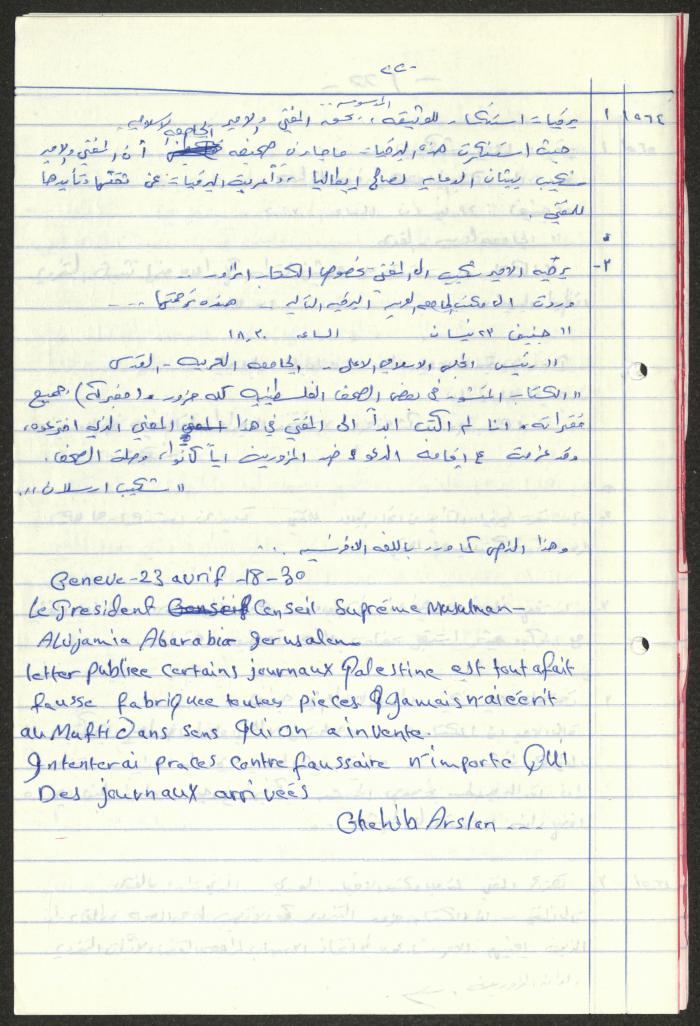 -٢٢-
١٥٦٤ ١ برقيات استنكار للوثيقة المدسوسة.. بحق المفتي والامير
حيث استنكرت هذه البرقيات ماجاء في صحيفة الجامعة الاسلامية أن المفتي والامير
شكيب يبثان الدعاية لصالح ايطاليا .. وأعربت البرقيات عن ثقتها وتأييدها
للمفتي .
٢- برقية الامير شكيب الى المفتي بخصوص الكتاب المزور ..
وردت الى مكتب الجامعة العربية البرقية التالية .. هذه ترجمتها ....
"جنيف ٢٣ نيسان الساعة ١٨,٣٠
"رئيس المجلس الاسلامي الاعلى - الجامعة العربية - القدس
"الكتاب المنشور في بعض الصحف الفلسطينية كله مزور و(مفبرك) بجميع
فقراته، انا لم اكتب ابداً الى المفتي في هذا المعنى الذي اخترعوه،
وقد عزمت ع اقامة الدعوى ضد المزورين اياً كانوا، وصلت الصحف.
"شكيب ارسلان".
وهذا النص كما ورد باللغة الافرنسية ...
Geneve-23 avrif -18-30
Le President Conseil Supréme Musulman-
ALDjamia Abarabia Jerusalem-
letter publiee certains journaux Palestine est tout afait
fausse fabriquee toutes pieces Jamais n'ai ecrit
au Mufti Dans sens Qui on a invente.
Intenterai praces contre faussaire n'importe QUI
Des journaux arrivées
Chekib Arslan ....